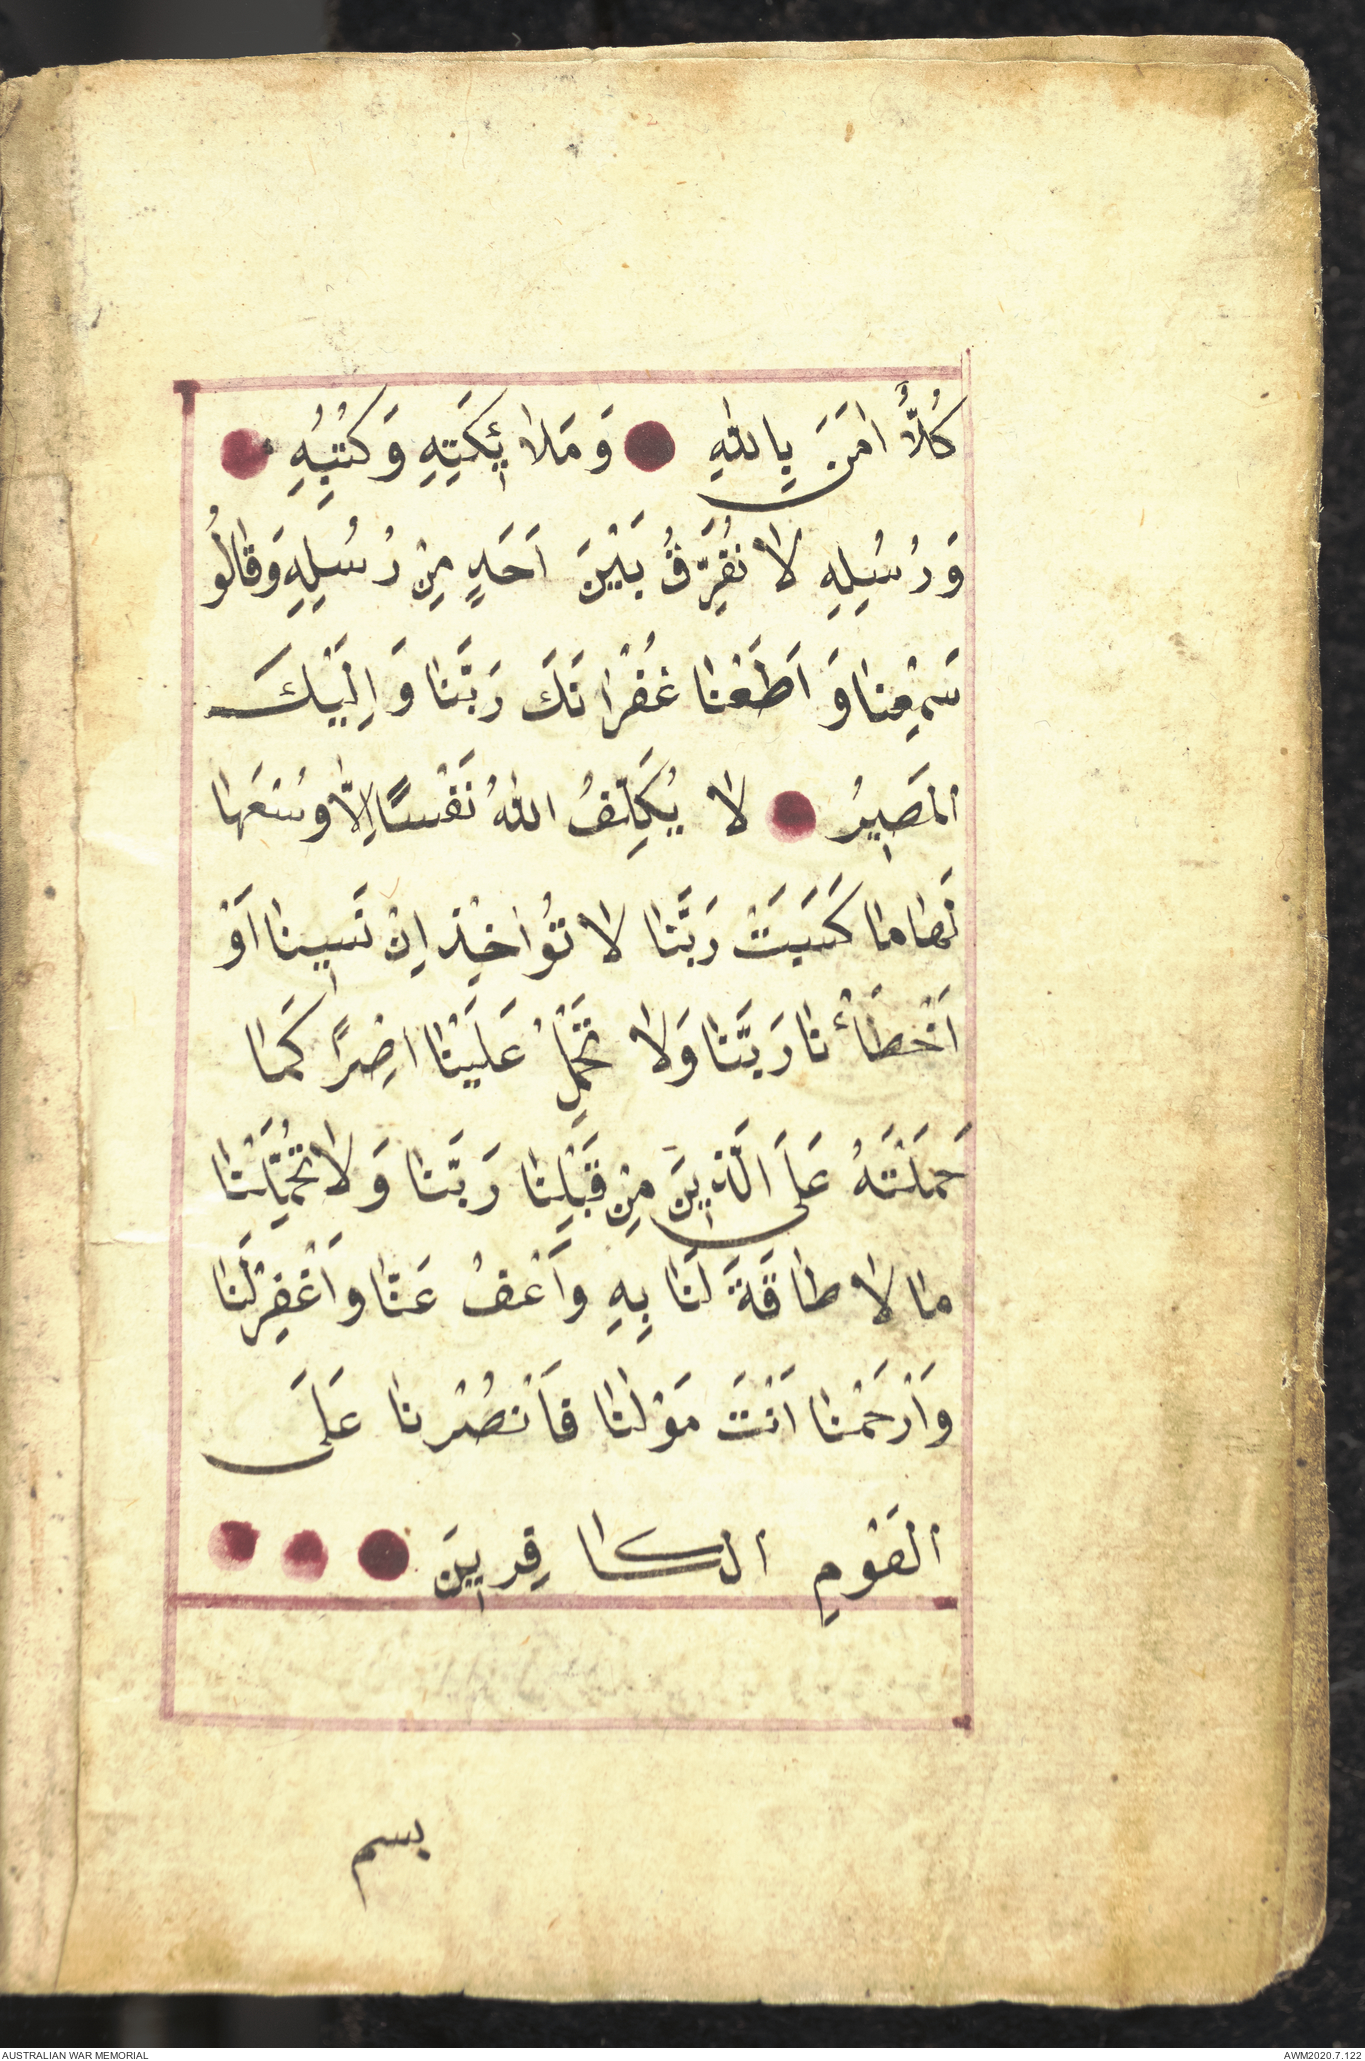 كُلٌّ اٰمَنَ بِاللّٰهِ وَمَلاۤئِكَتِهِ وَكُتُبِهِ
وَرُسُلِهِ لا نُفَرِّقُ بَيْنَ اَحَدٍ مِنْ رُسُلِهِ وَقٰالُو
سَمِعْنٰا وَاَطَعْنٰا غُفْرٰانَكَ رَبَّنٰا وَاِلَيْكَ
المَصِيرُ لاٰ يُكَلِّفُ اللّٰهُ نَفْسًا اِلّٰا وُسْعَهٰا
لَهٰا مٰا كَسَبَتْ رَبَّنٰا لاٰ تُؤٰاخِذْ اِنْ نَسِينٰا اَوْ
اَخْطَأْنٰا رَبَّنٰا وَلاٰ تَحْمِلْ عَلَيْنٰا اصِْرًا كَمٰا
حَمَلْتَهُ عَلَى الَّذِينَ مِنْ قَبْلِنٰا رَبَّنٰا وَلاٰ تُحَمِّلْنٰا
مٰا لاٰ طٰاقَةَ لَنٰا بِهِ وَاَعْفُ عَنّٰا وَاَغْفِرْ لَنٰا
وَاَرْحَمْنٰا اَنْتَ مَوْلٰنٰا فَاَنْصُرْنٰا عَلَى
القَوْمِ الكٰافِرِينَ
بسم
AUSTRALIAN WAR MEMORIAL
AWM2020.7.122